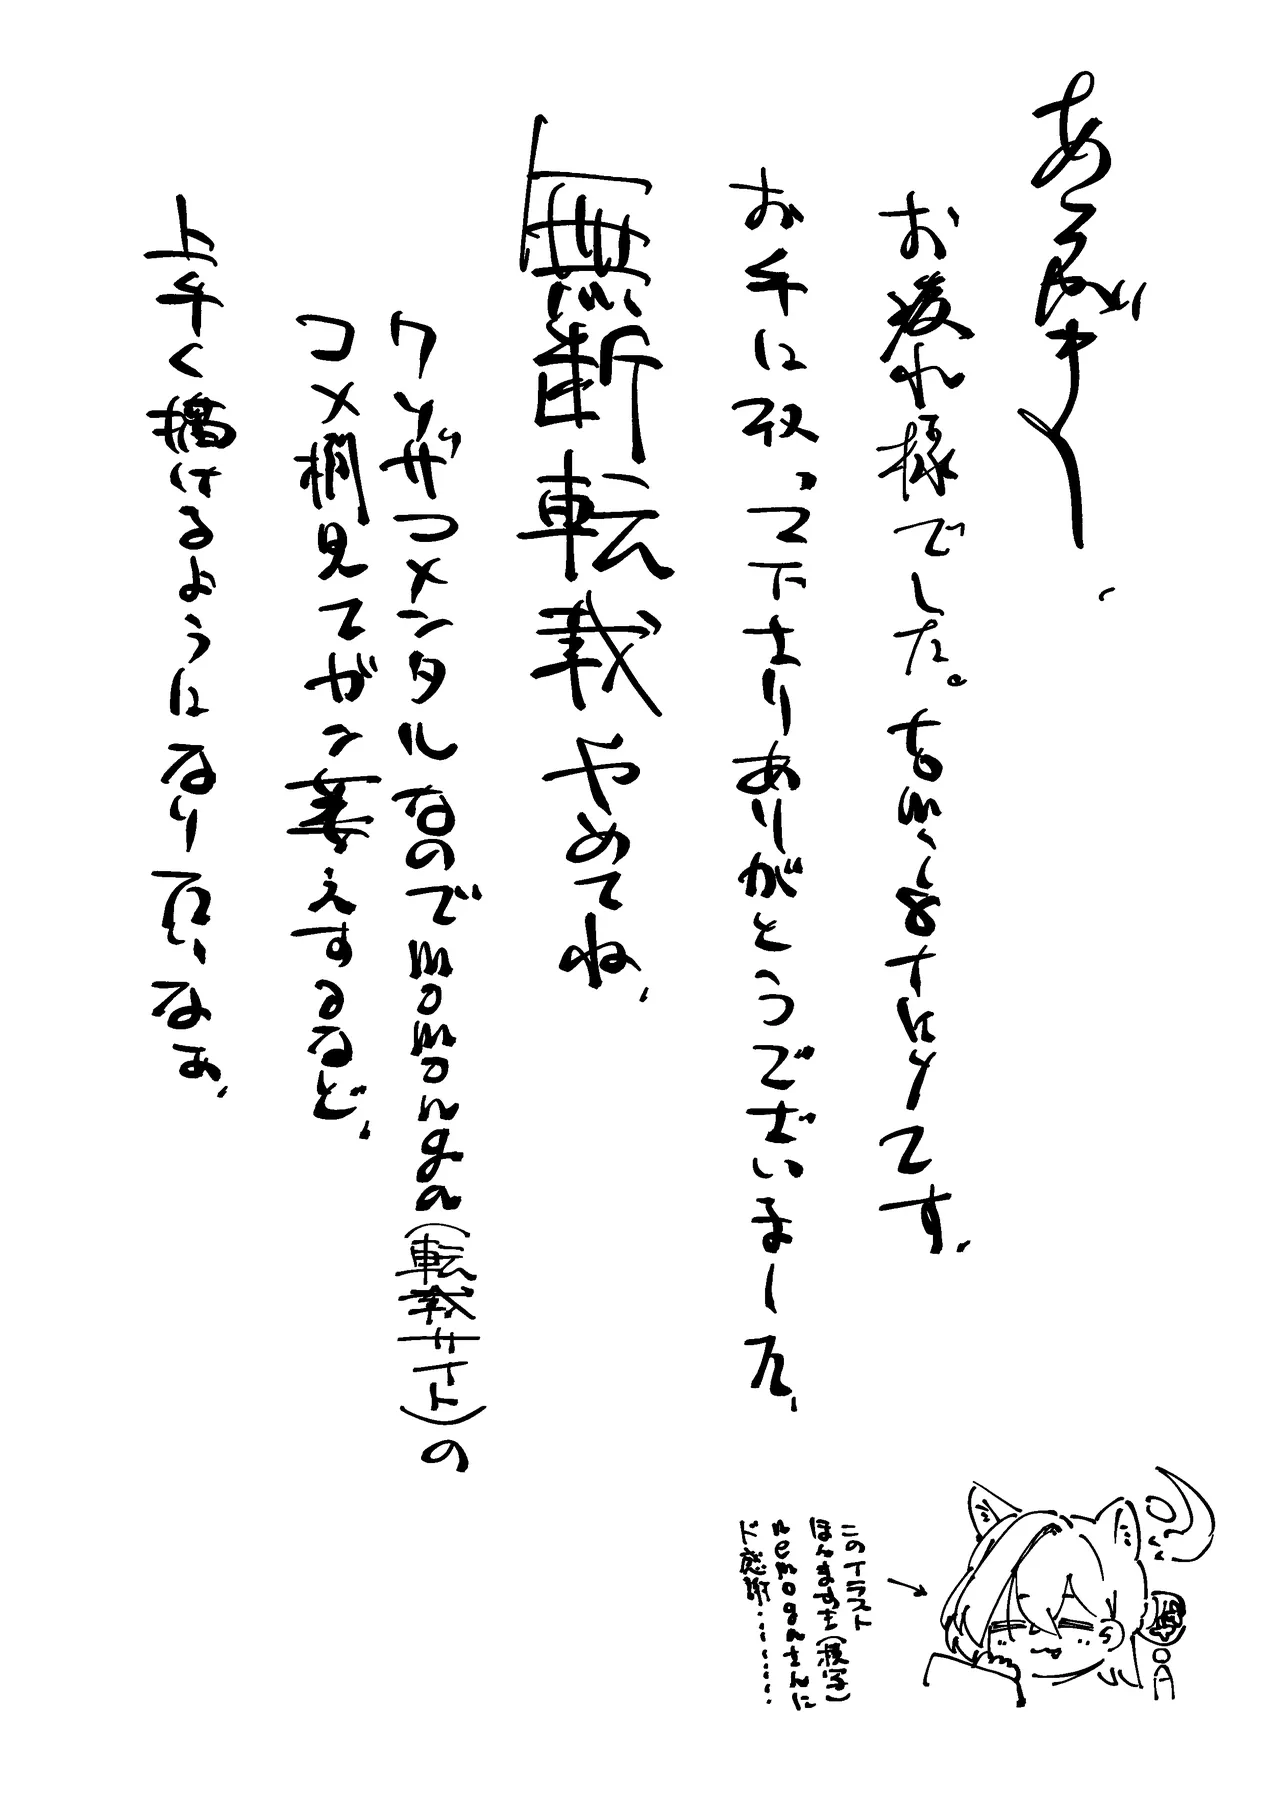 あとがき
お疲れ様でした。
です。
お手に取って下さりありがとうございました。
無断転載やめてね、
クソザコメンタルなのでmomonga(転載サイト)の
コメ欄見てガン萎えするなど、
上手く描けるようになりたいなあ、
このイラスト
ほんますき(模写)
nemogaさんに
ド感謝………